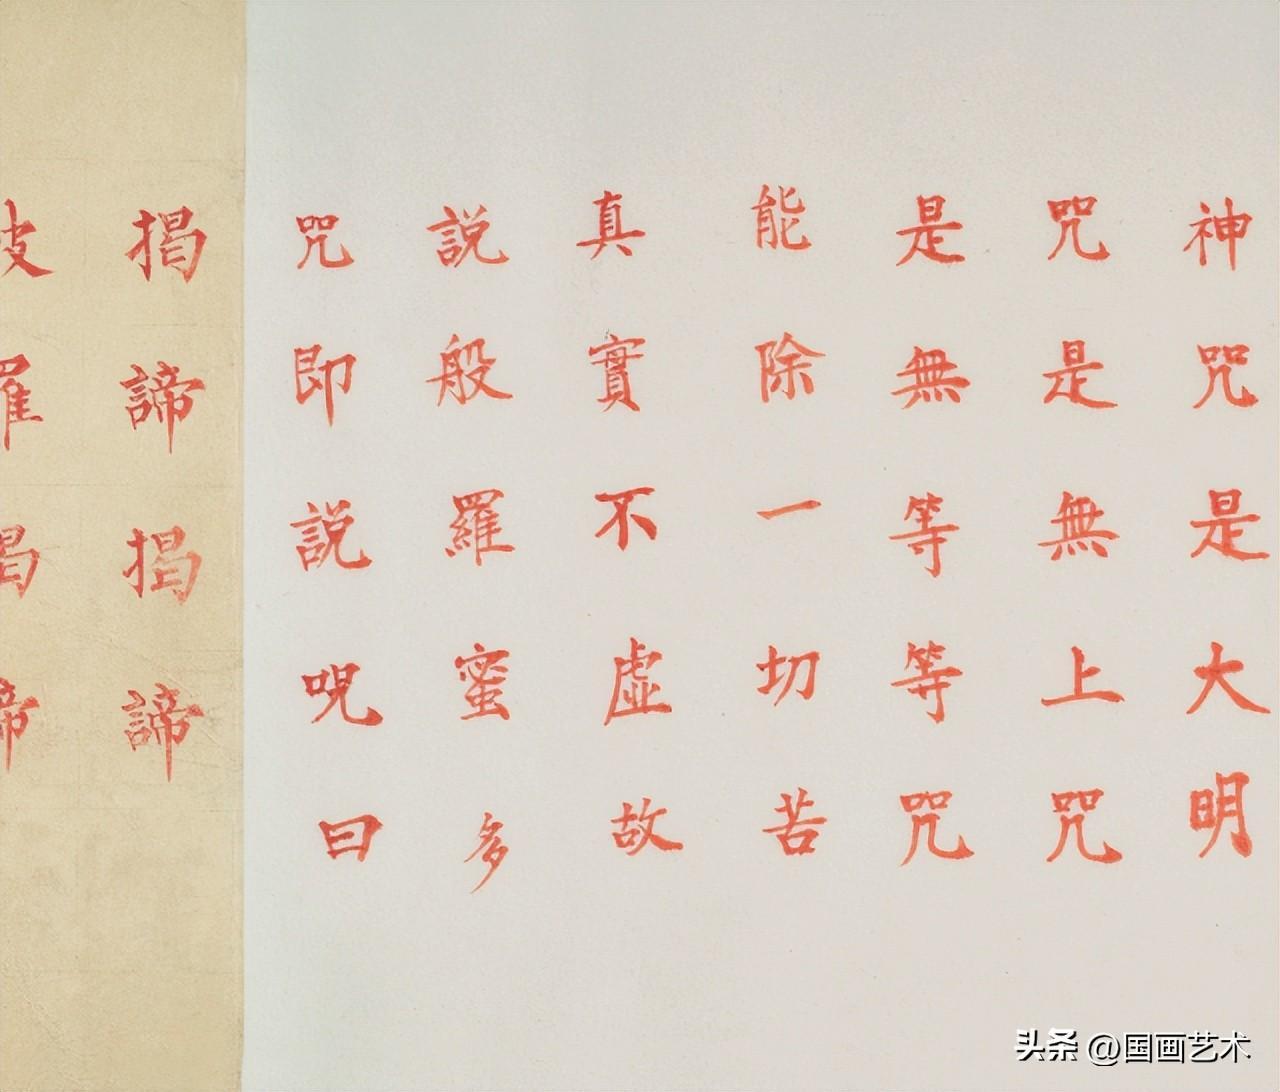 神咒是大明
咒是無上咒
是無等等咒
能除一切苦
真實不虚故
説般羅蜜多
咒即説呪曰
揭諦揭諦
波羅揭諦
头条 @国画艺术